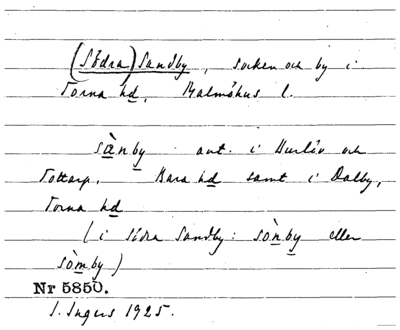 (Södra) Sandby, socken och by i
Torna hd, Malmöhus l.
sànby ant. i Burlöv och
Tottarp, Bara hd samt i Dalby,
Torna hd
(i Södra Sandby: sònby eller
sòmby)
Nr 5850.
I. Ingers 1925.